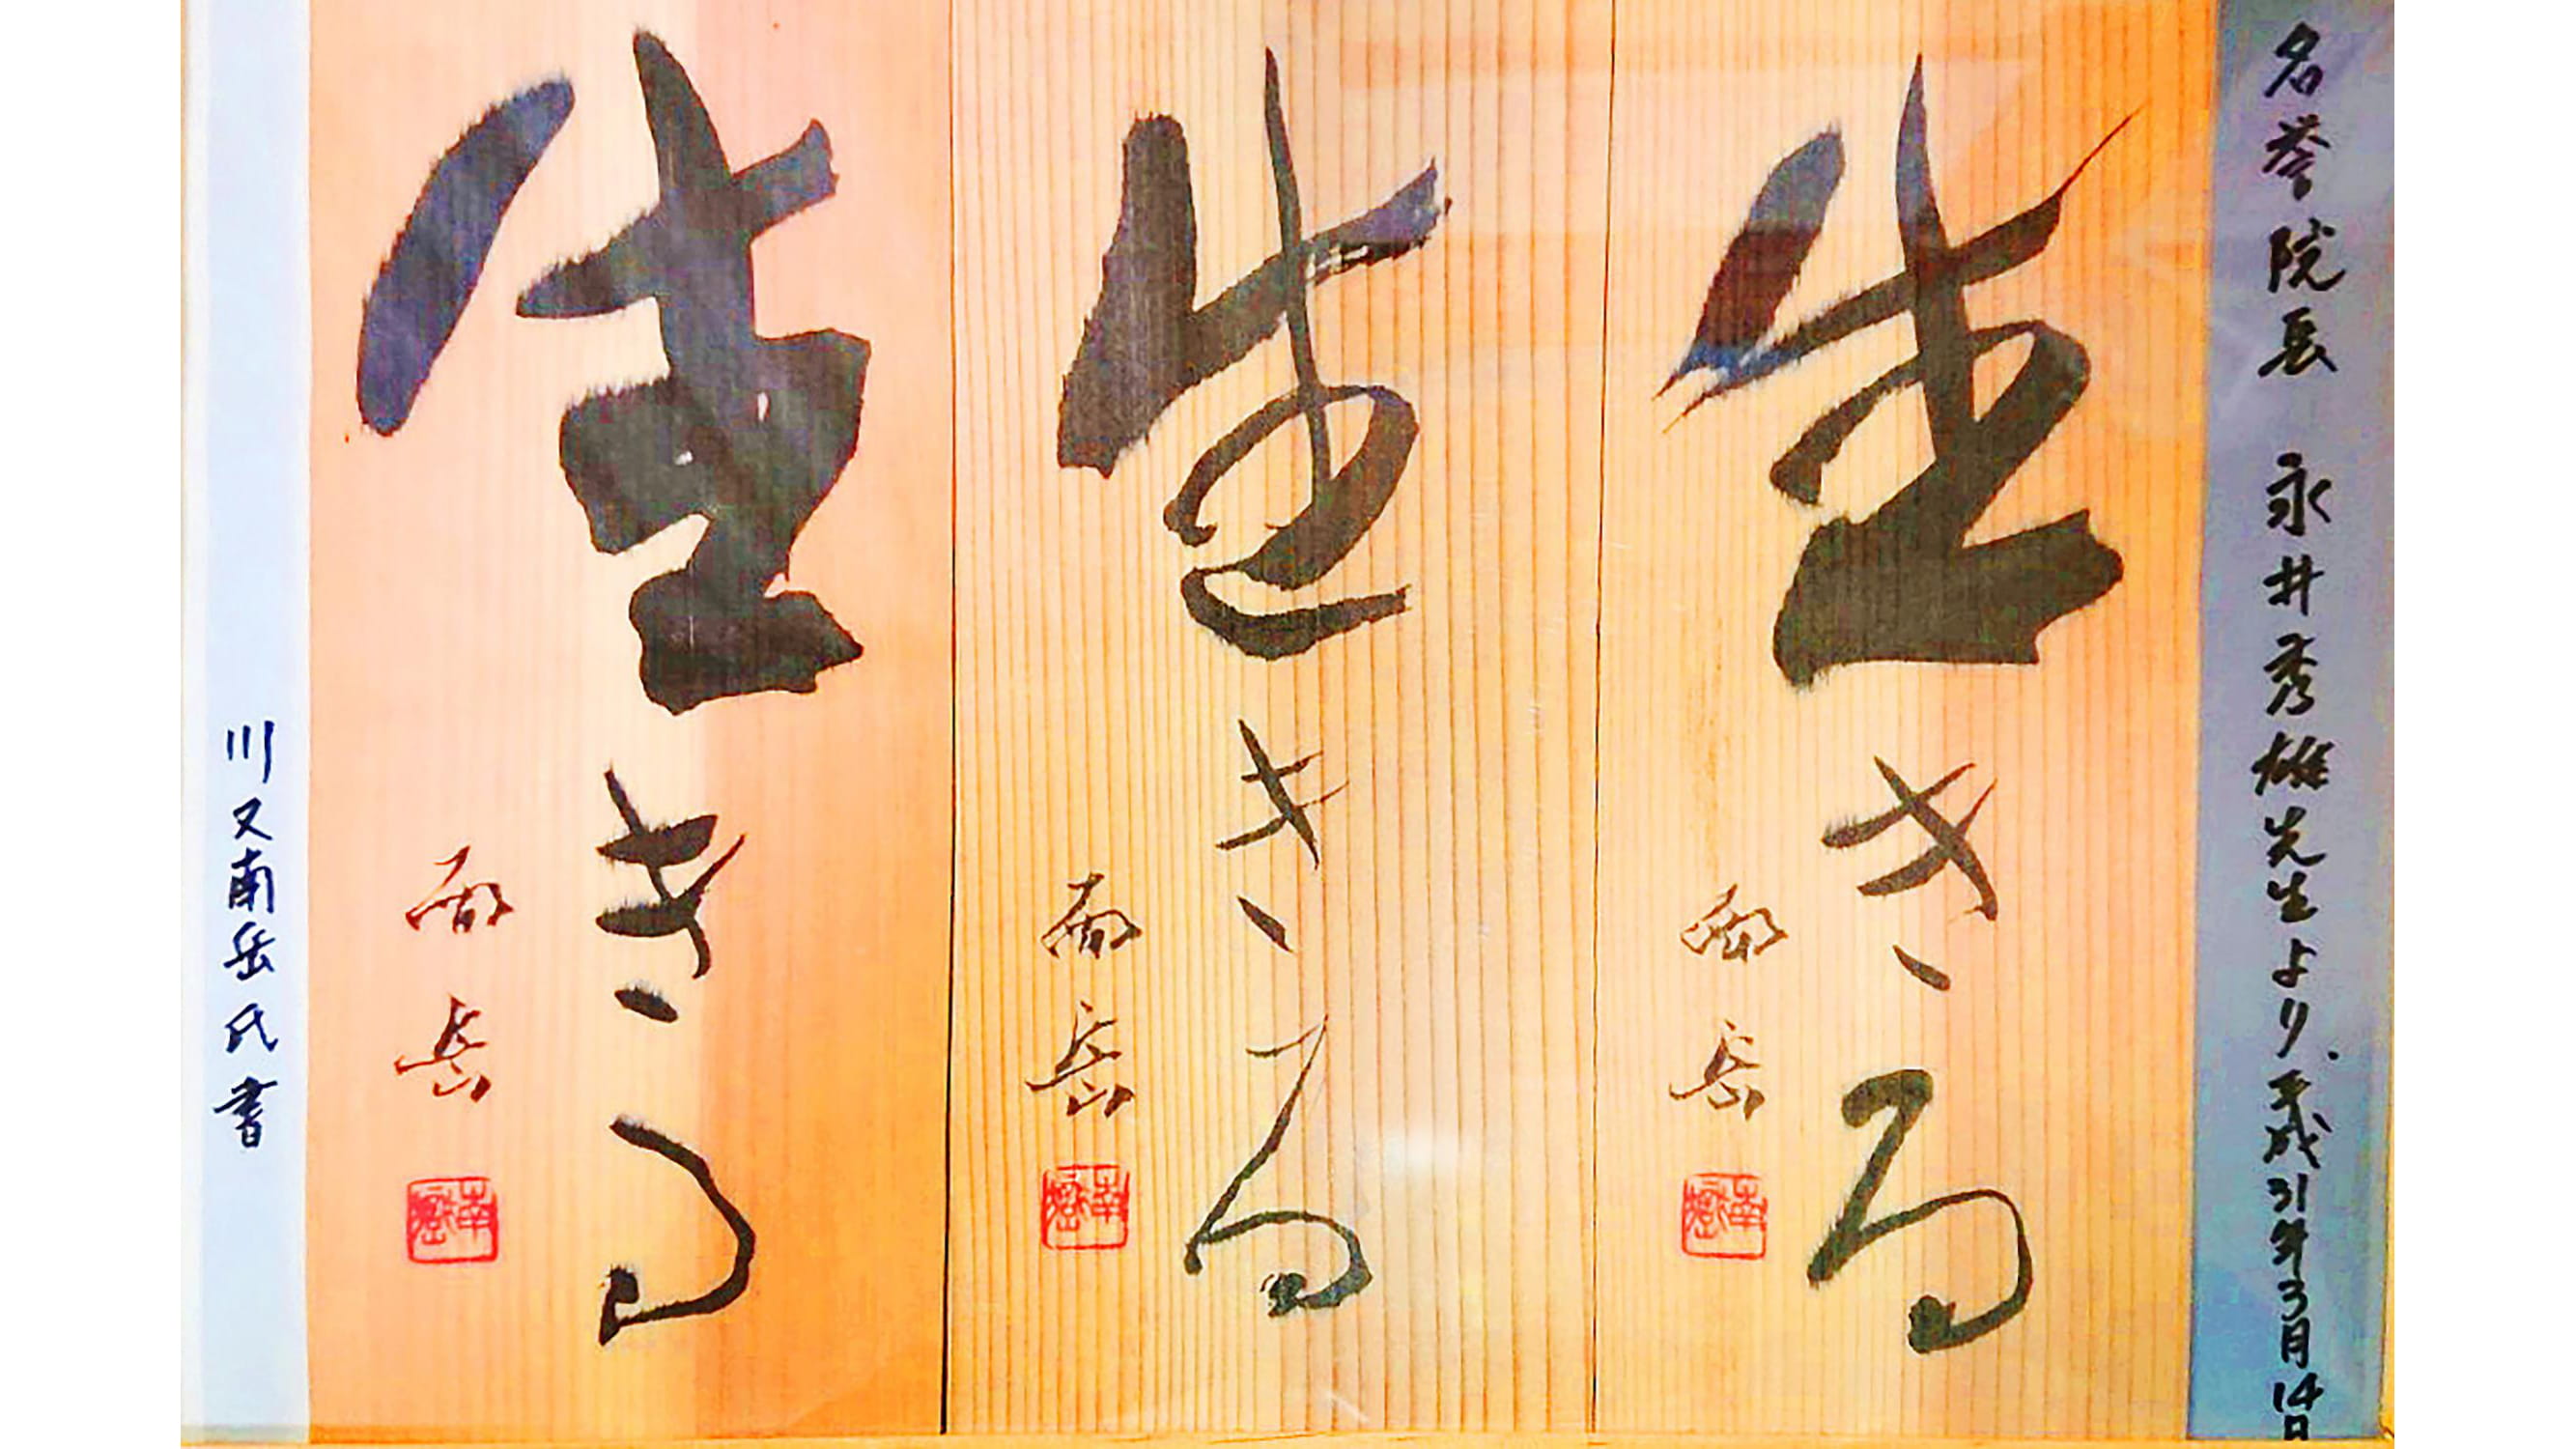 名誉院長 永井秀雄先生より 平成31年3月14日
生きる
南岳
南嶽
生きる
南岳
南嶽
生きる
南岳
南嶽
川又南岳氏書